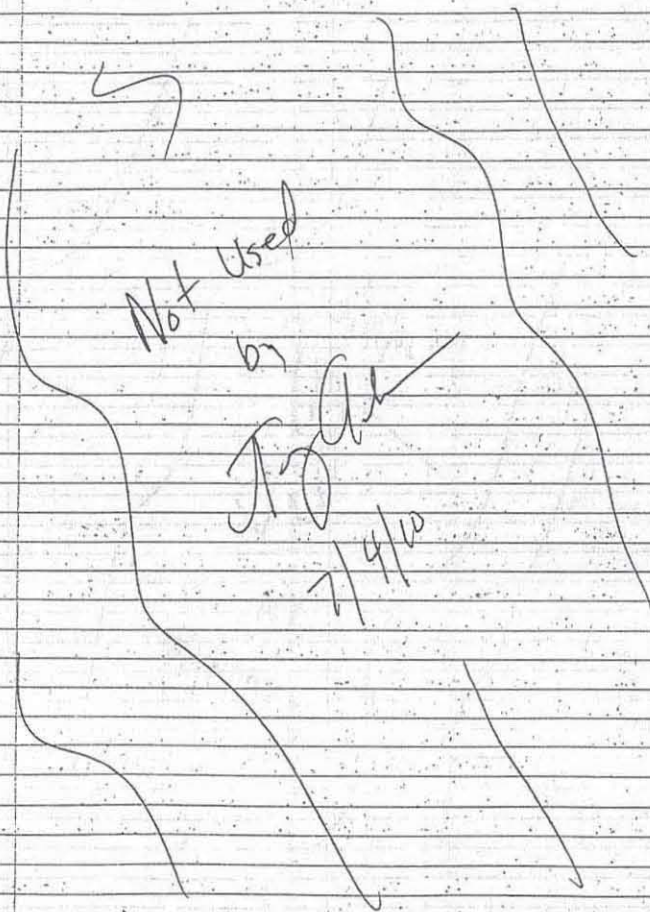 Not Used
by
7/4/10